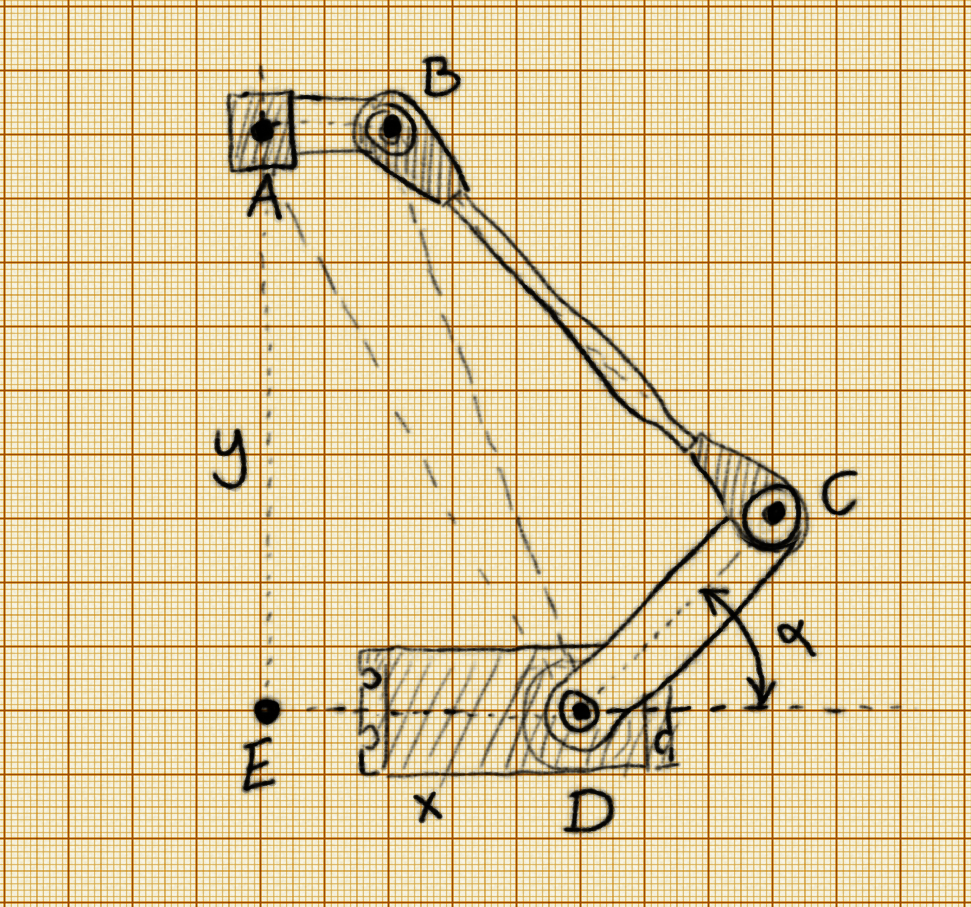 B
A
y
C
α
E
x
D